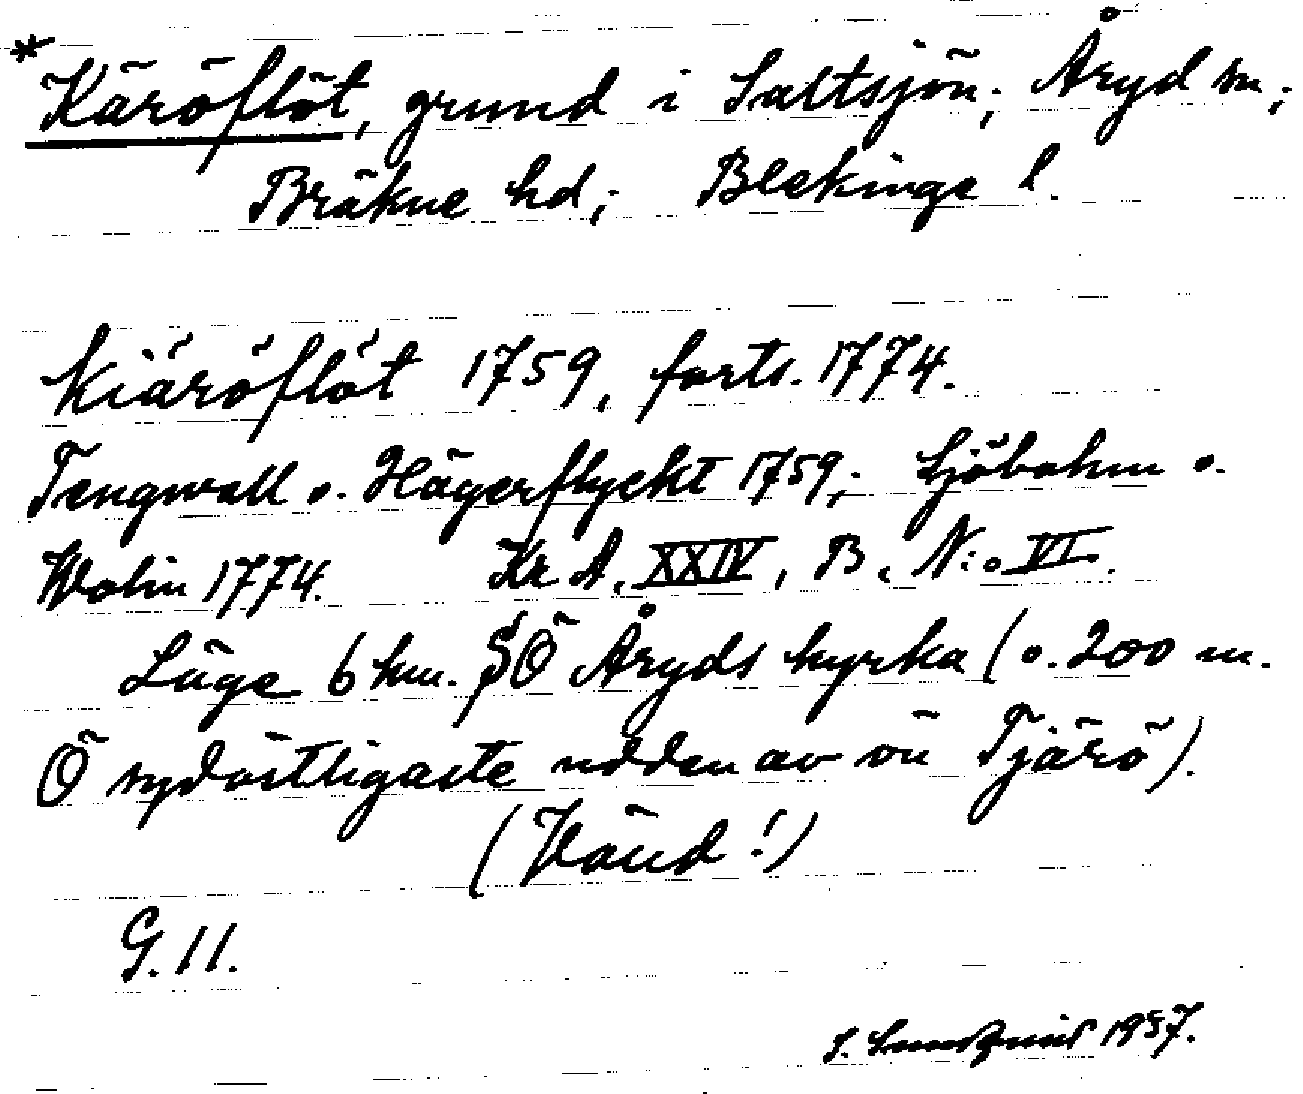 *Käröflöt, grund i Saltsjön; Åryd sn;
Bräkne hd; Blekinge l.
Kiäröflöt 1759, forts. 1774.
Tengwall o. Hägerflyckt 1759; Sjöbohm o.
Wolin 1774. Kr A. XXIV, B. N:o VI.
Läge 6 km. SÖ Åryds kyrka (o. 200 m.
Ö sydöstligaste udden av ön Tjärö).
(Vänd!)
G. 11.
S. Lundquist 1957.